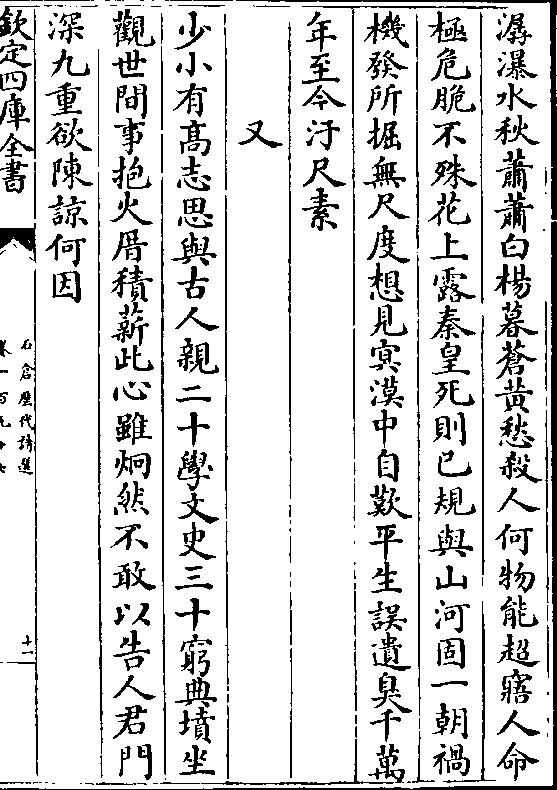 潺瀑水秋蕭蕭白楊暮蒼黃愁殺人何物能超寤人命
極危脆不殊花上露秦皇死則已規與山河固一朝禍
機發所掘無尺度想見冥漠中自歎平生誤遺臭千萬
年至今汙尺素
又
少小有髙志思與古人親二十學文史三十窮典墳坐
觀世間事抱火厝積薪此心雖炯然不敢以告人君門
深九重欲陳諒何因
欽定四庫全書
石倉歷代詩選
十一